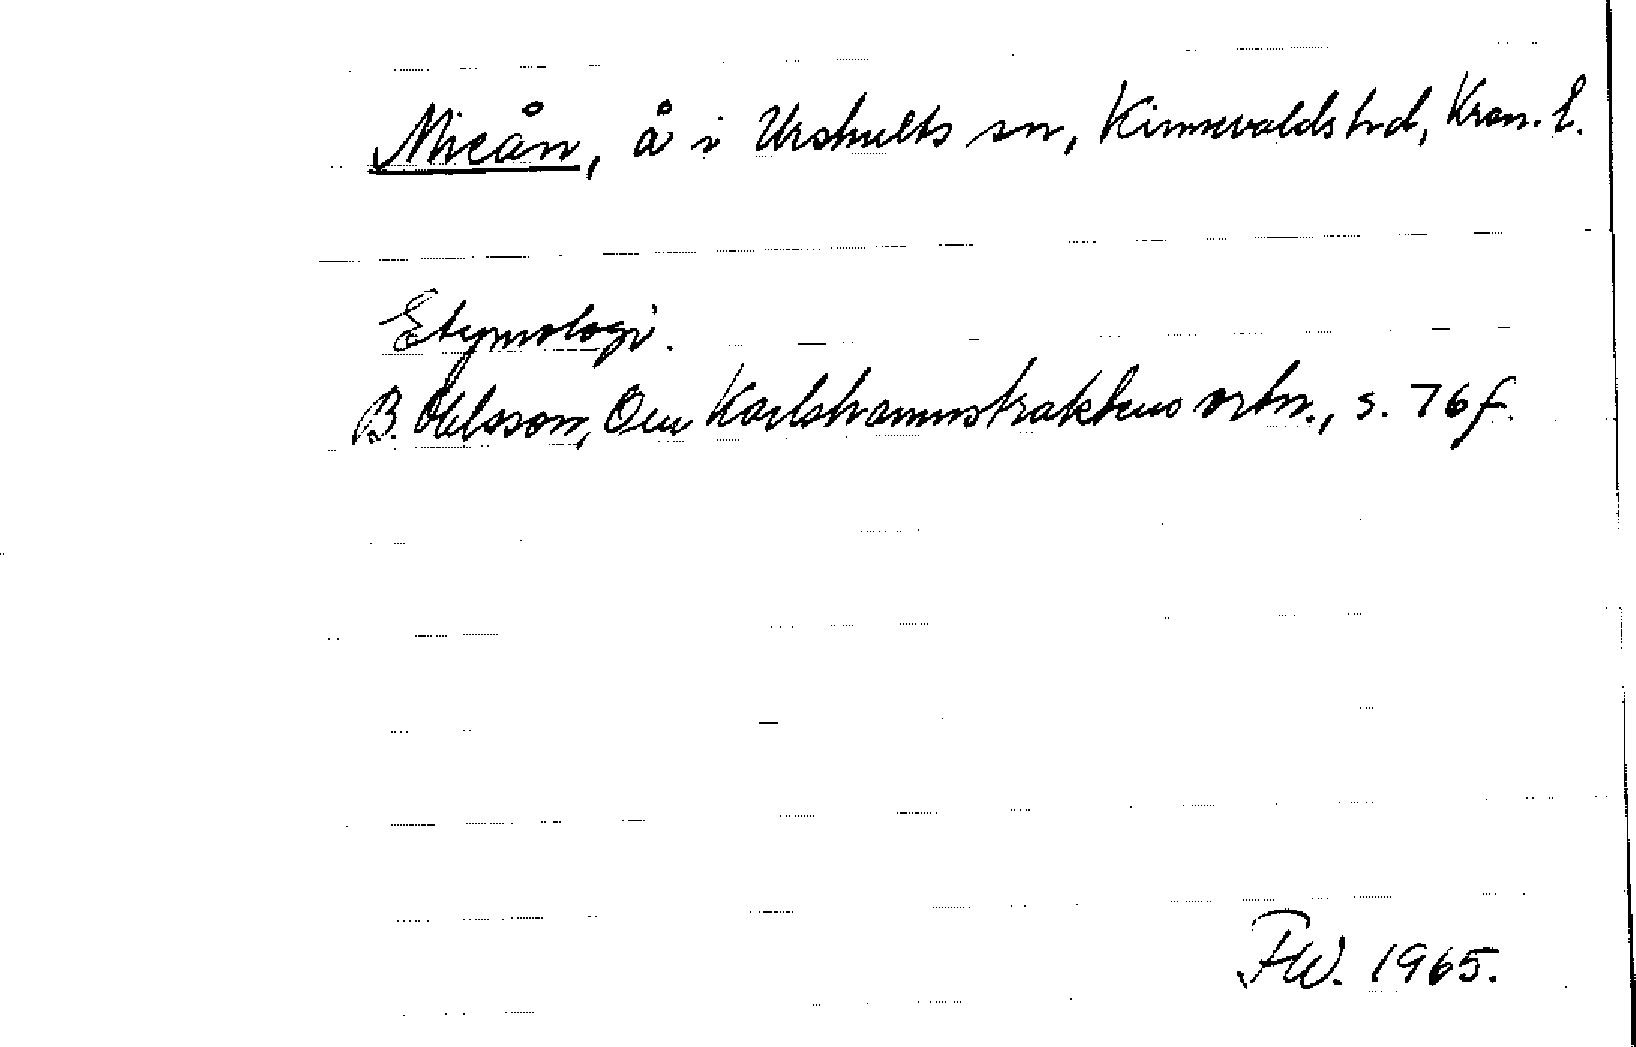 Mieån, å i Urshults sn, Kinnevalds hd, Kron. l.
Etymologi.
B. Ohlsson, Om Karlshamnstraktens ortn., s. 76 f.
FW. 1965.